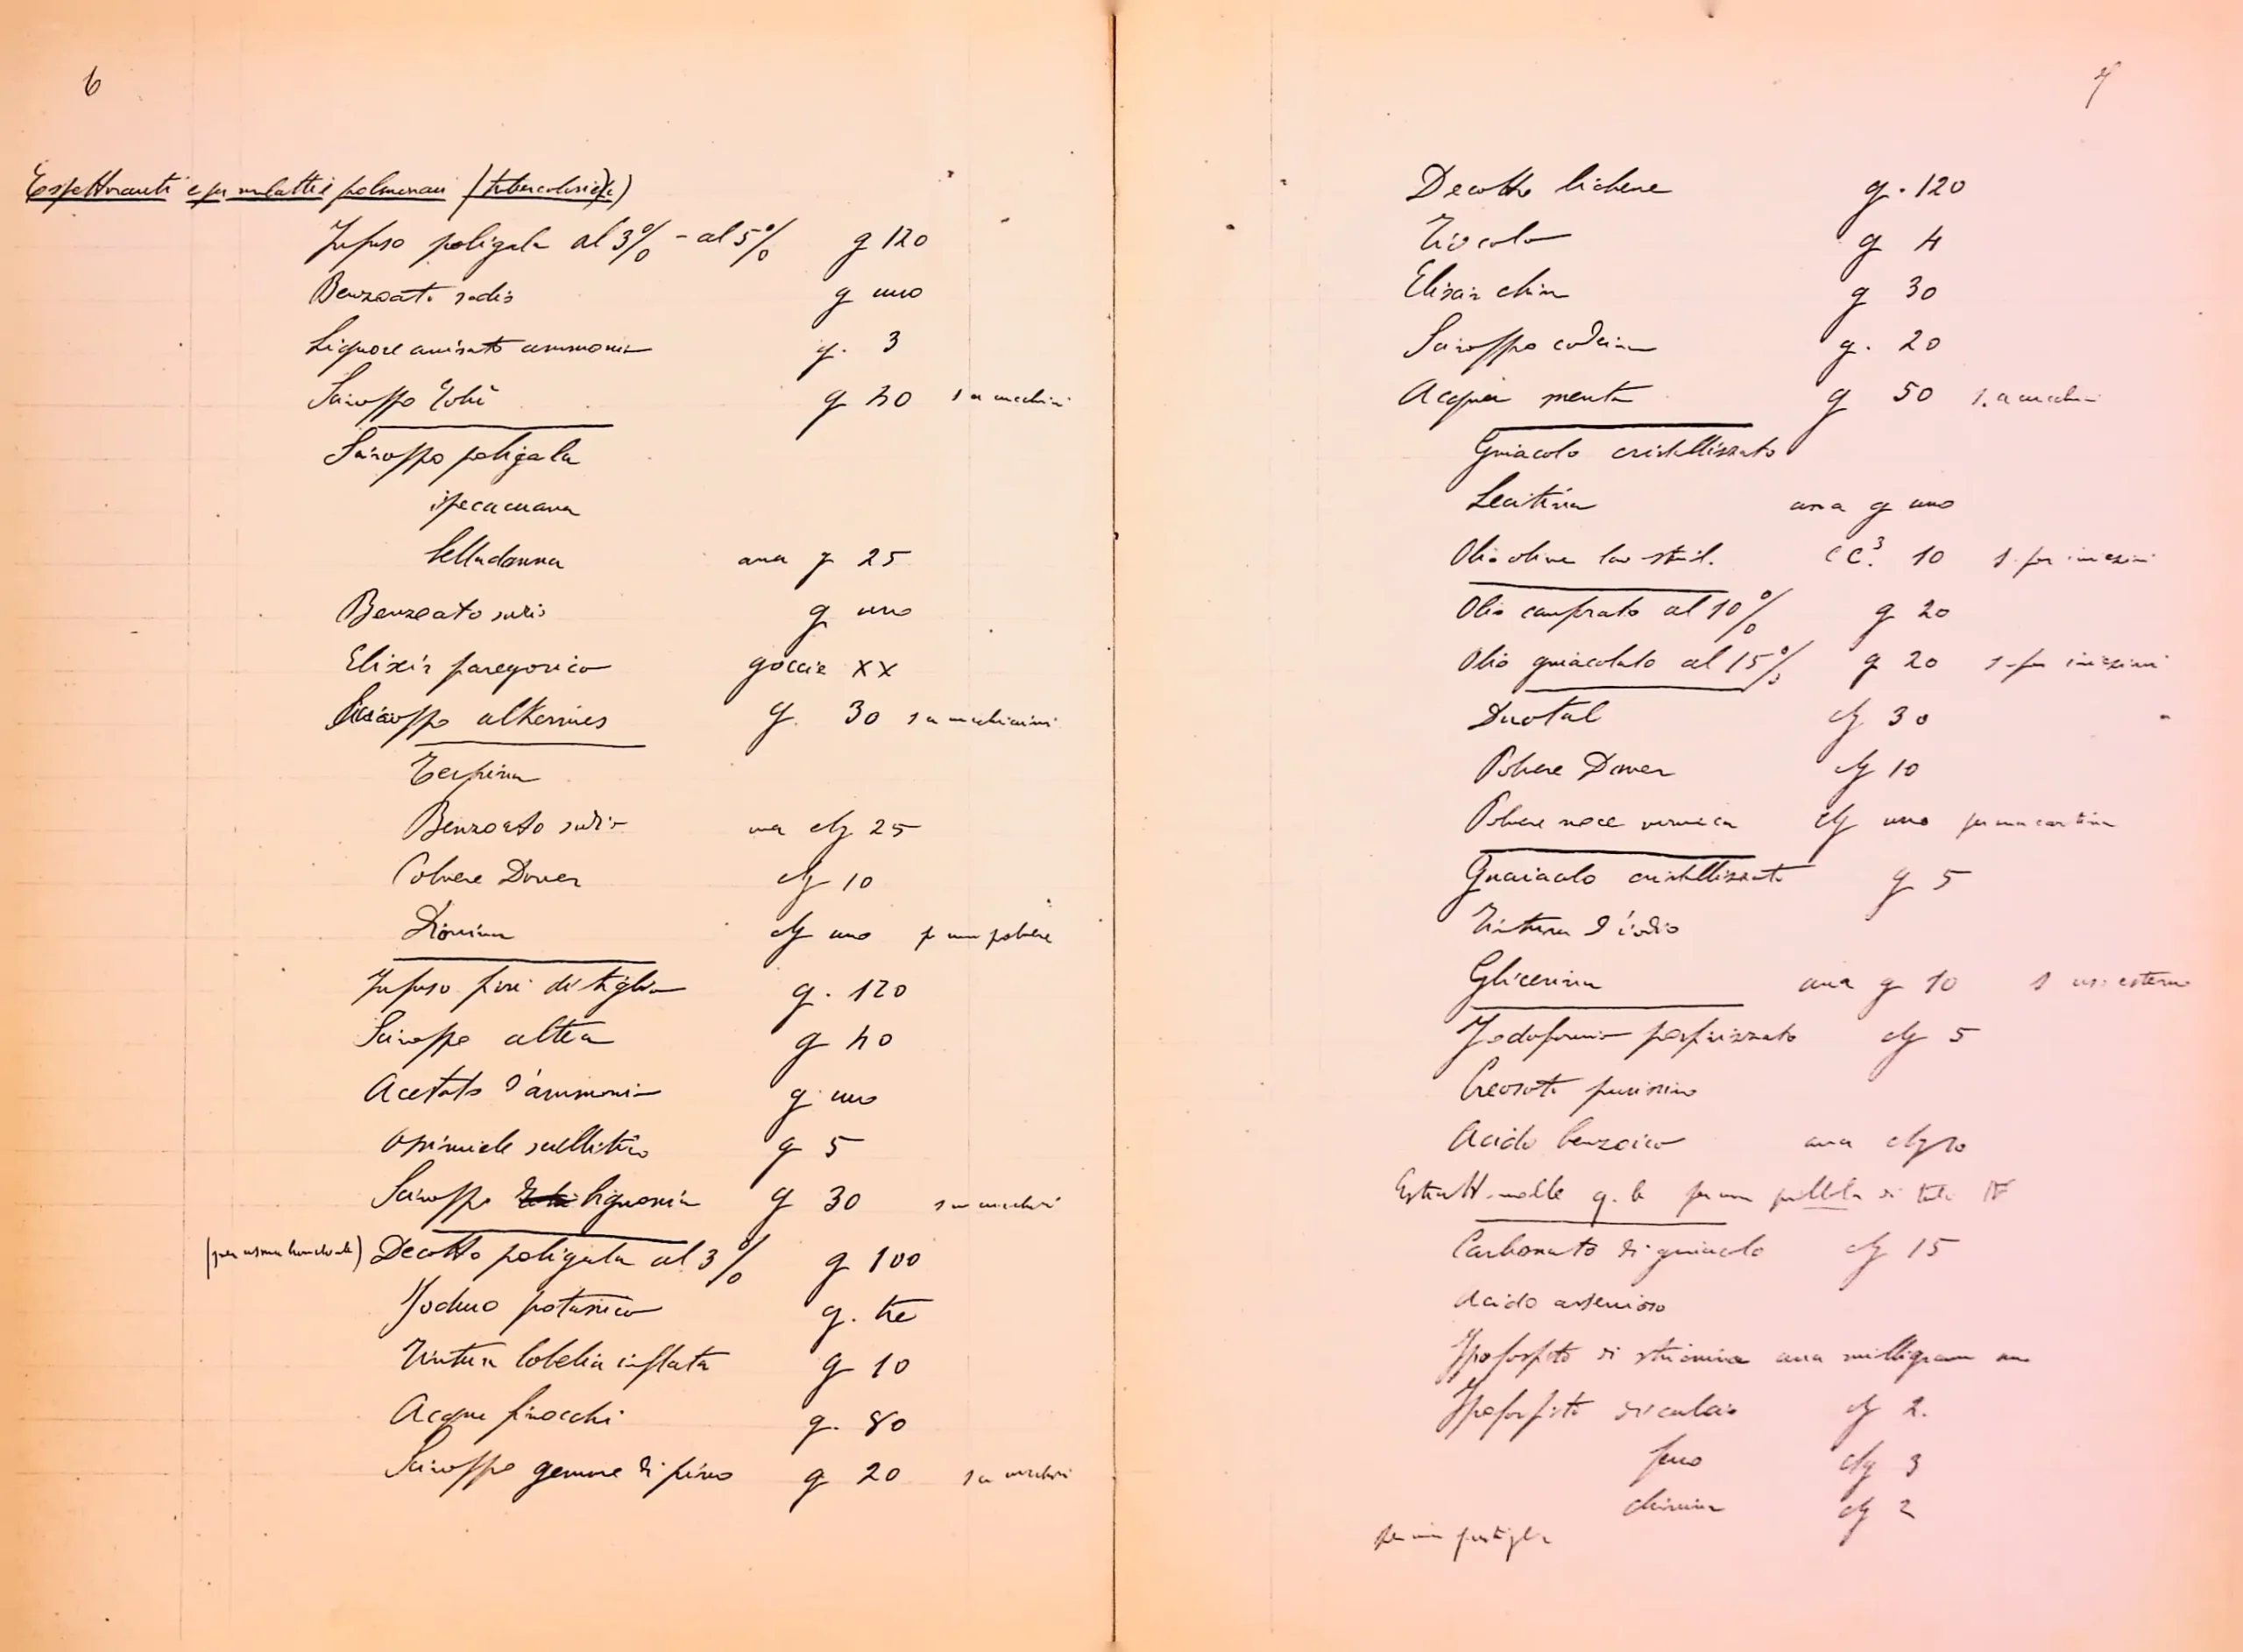 6
Espettoranti e per malattie polmonari (tubercolosi etc)
Infuso poligala al 3% - al 5% g 120
Benzoato sodio g uno
Liquore anisato ammonio g. 3
Sciroppo Tolù g 40 s a cucchiai
Sciroppo poligala
ipecacuana
belladonna ana g 25
Benzoato sodio g uno
Elixir paregorico goccie XX
Sciroppo alkermes g. 30 s a cucchiaini
Terpina
Benzoato sodio ana clg 25
Polvere Dover clg 10
Dionina clg uno p una polvere
Infuso fiori di tiglio g. 120
Sciroppo altea g 40
Acetato d'ammonio g uno
Ossimiele scillitico g 5
Sciroppo g 30 s a cucchiai
(per asma bronchiale) Decotto poligala al 3% g 100
Joduro potassico g. tre
Tintura lobelia inflata g 10
Acqua finocchi g. 80
Sciroppo gemme di pino g 20 s a cucchiai
7
Decotto lichene g. 120
Tiocolo g 4
Elisir china g 30
Sciroppo codeina g. 20
Acqua menta g 50 s. a cucchiai
Guiacolo cristallizzato
Lecitina ana g uno
Olio olive lav steril. CC.³ 10 s. per iniezioni
Olio canforato al 10% g 20
Olio guiacolato al 15% g 20 s. per iniezioni
Duotal clg 30
Polvere Dover clg 10
Polvere noce vomica clg uno per una cartina
Guaiacolo cristallizzato g 5
Tintura d'iodio
Glicerina ana g 10 s uso esterno
Jodoformio porfirizzato clg 5
Creosoto purissimo
Acido benzoico ana clg 10
Estratto molle q. b per una pillola di tali
Carbonato di guiacolo clg 15
Acido arsenioso
Ipofosfito di stricnina ana milligrammo uno
Ipofosfito di calcio clg 2.
ferro clg 3
chinina clg 2
per una pastiglia